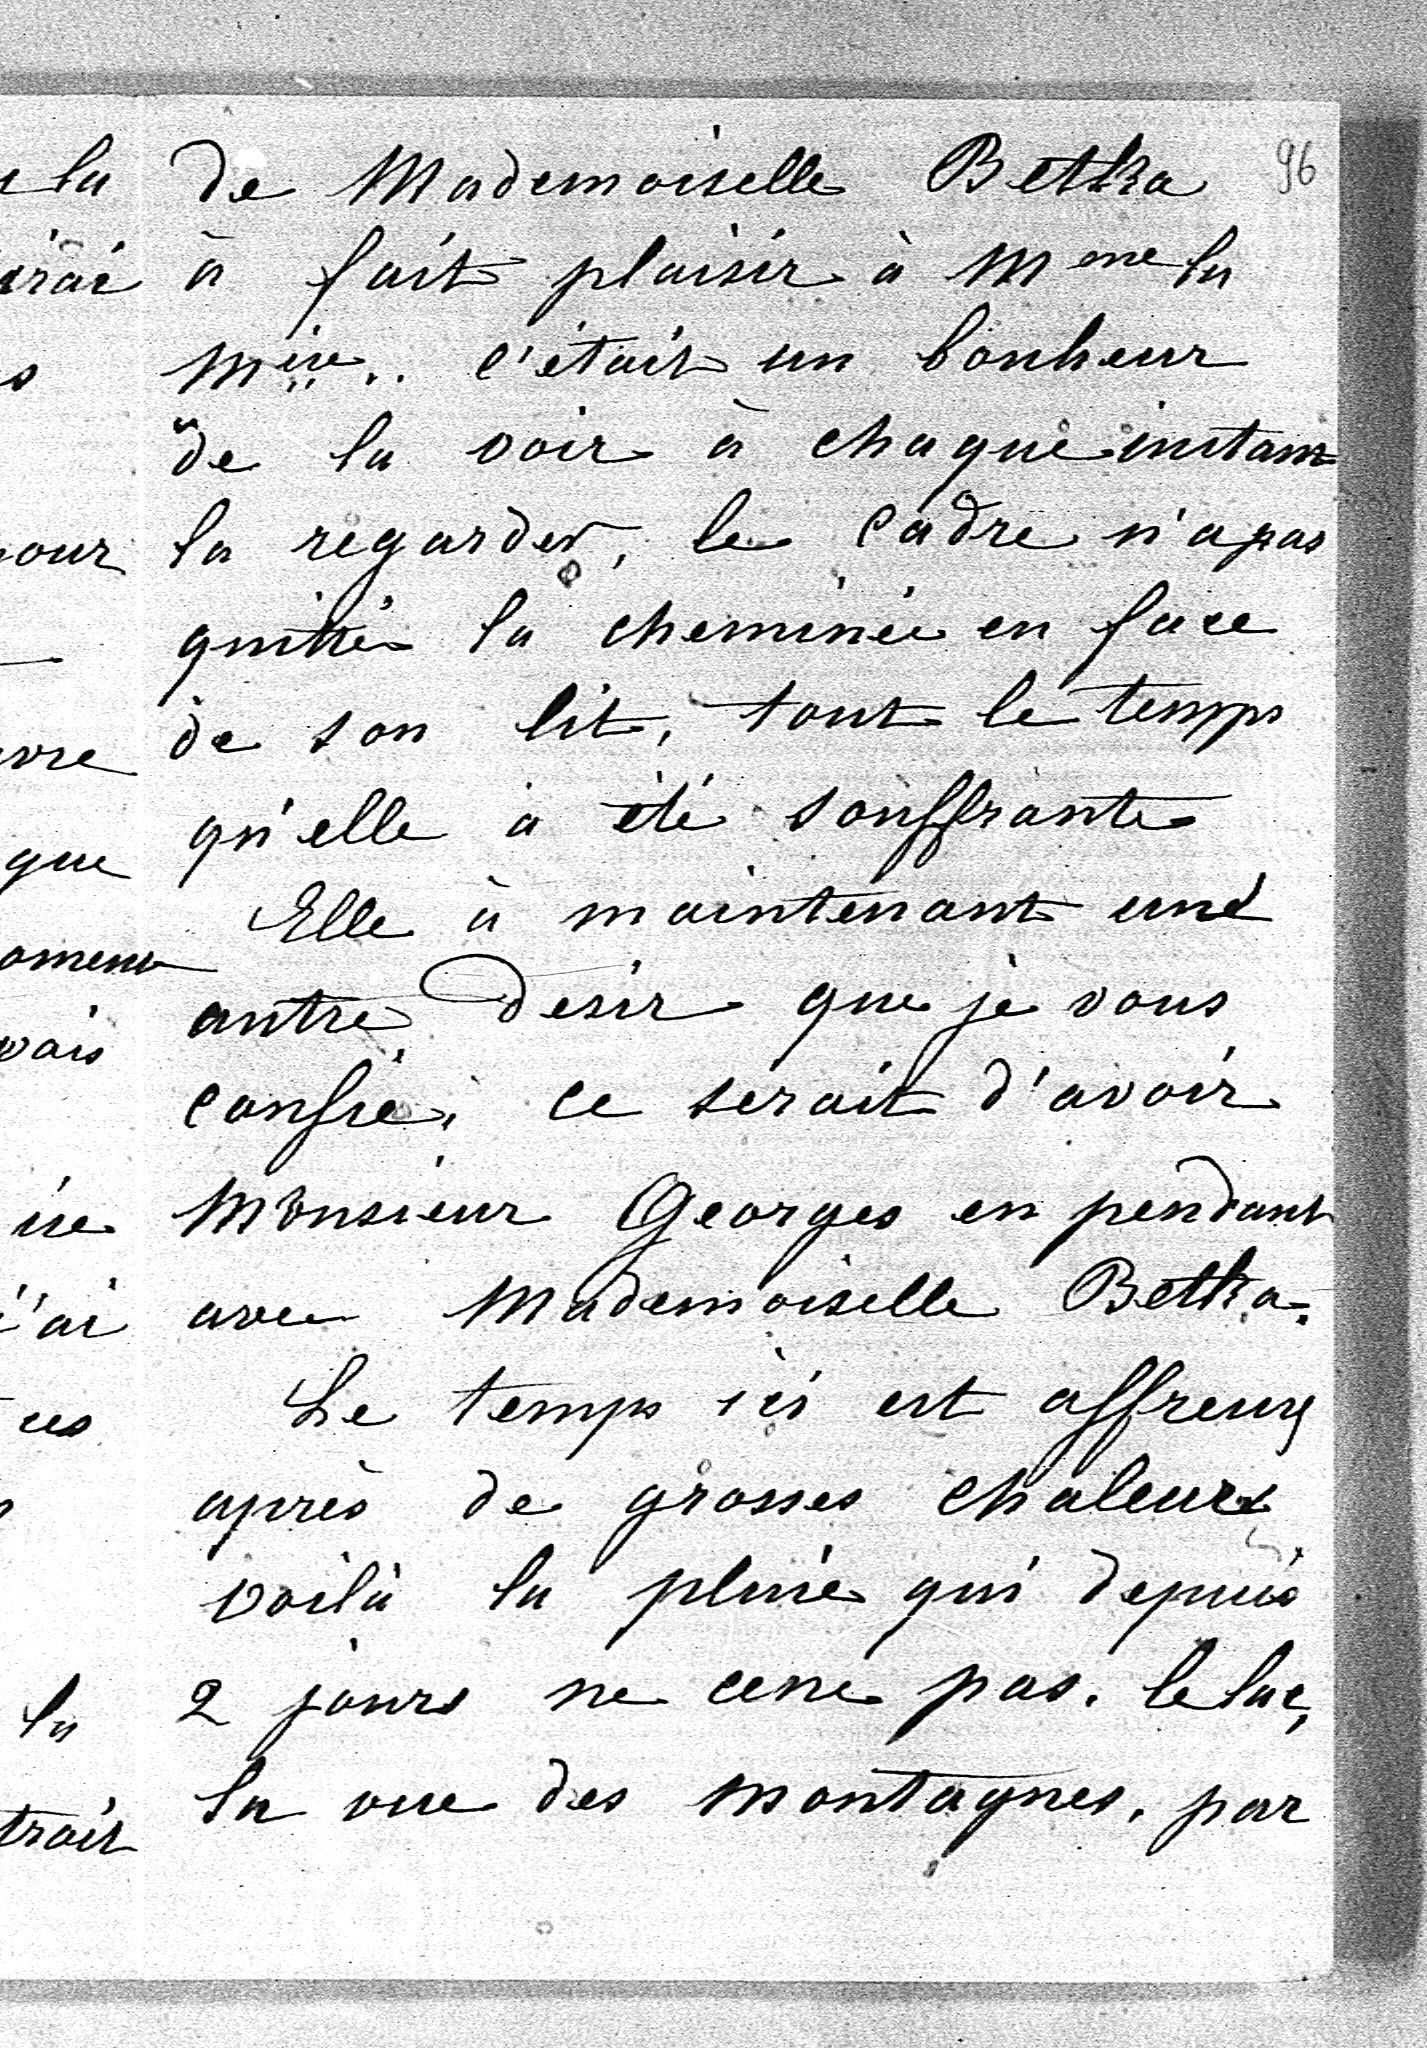 96
de Mademoiselle Betka
à fait plaisir à Mme la
Mise.. c'était un bonheur
de la voir à chaque instant
la regarder, le cadre n'a pas
quitté la cheminée en face
de son lit, tout le temps
qu'elle à été souffrante
Elle à maintenant une
autre desir que je vous
confie, ce serait d'avoir
Monsieur Georges en pendant
avec Mademoiselle Betka.
Le temps ici est affreux
après de grosses chaleurs
voilà la pluie qui depuis
2 jours ne cesse pas. le lac,
la vue des montagnes, par